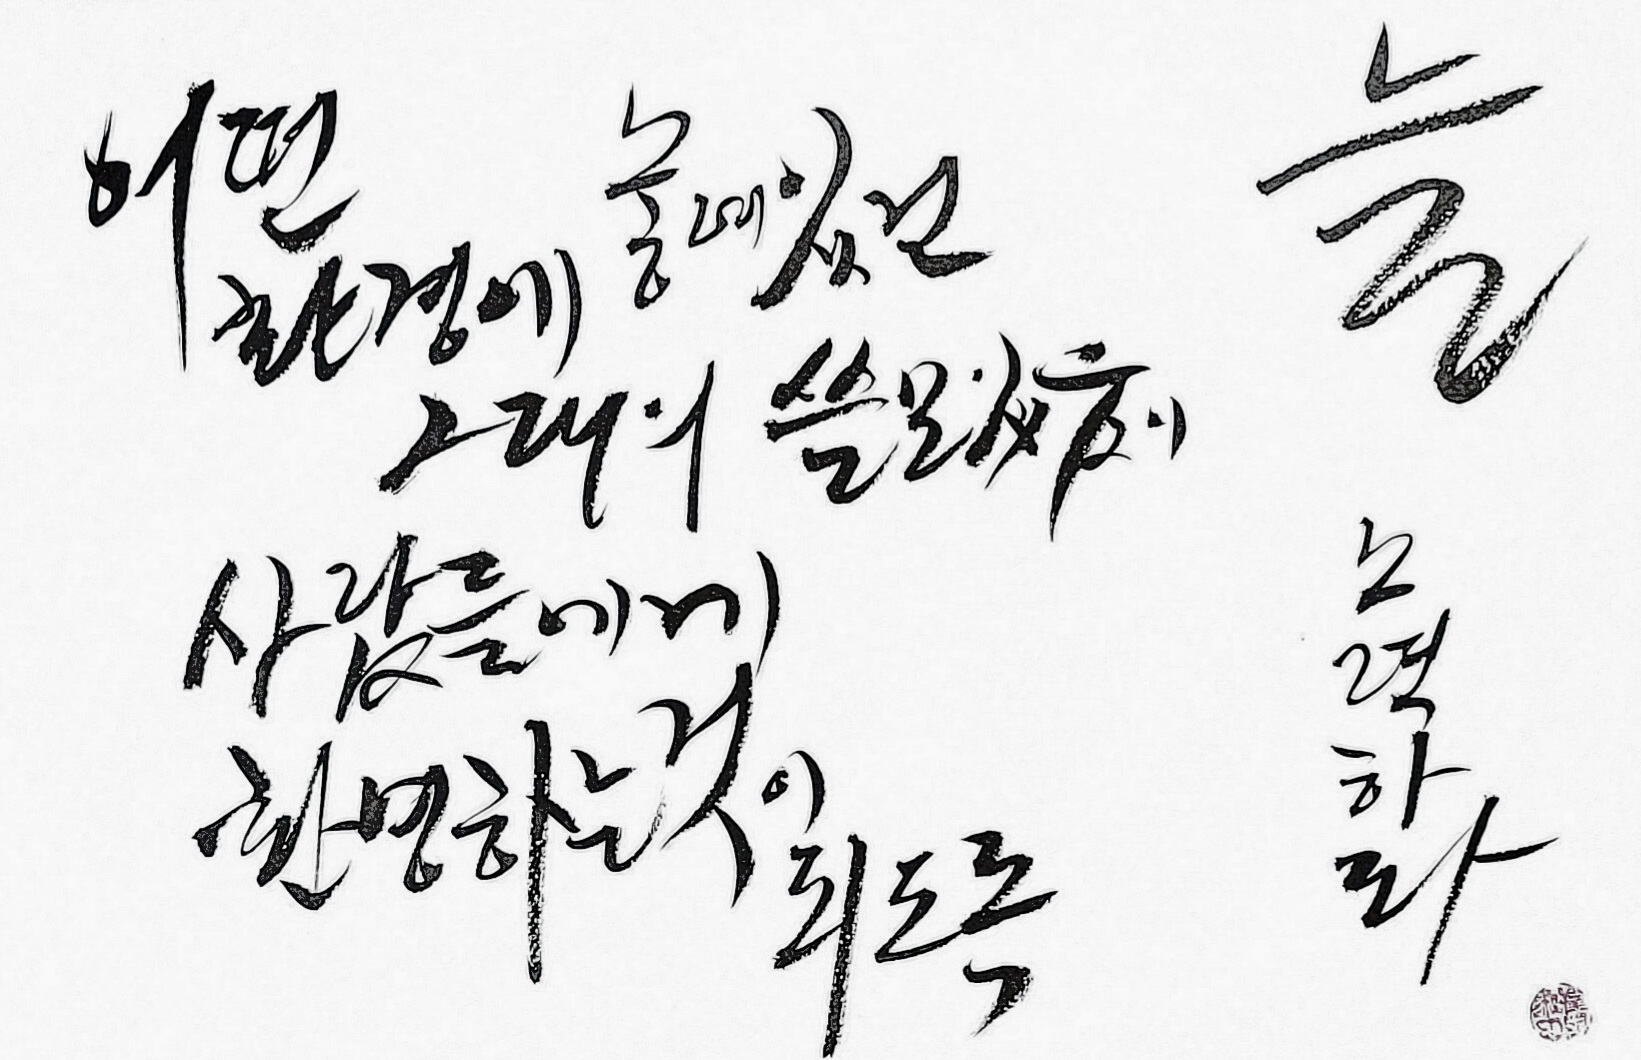 어떤 놓여있건
환경에
그대의
사람들에게
하는것이
되도록
늘
노력하라